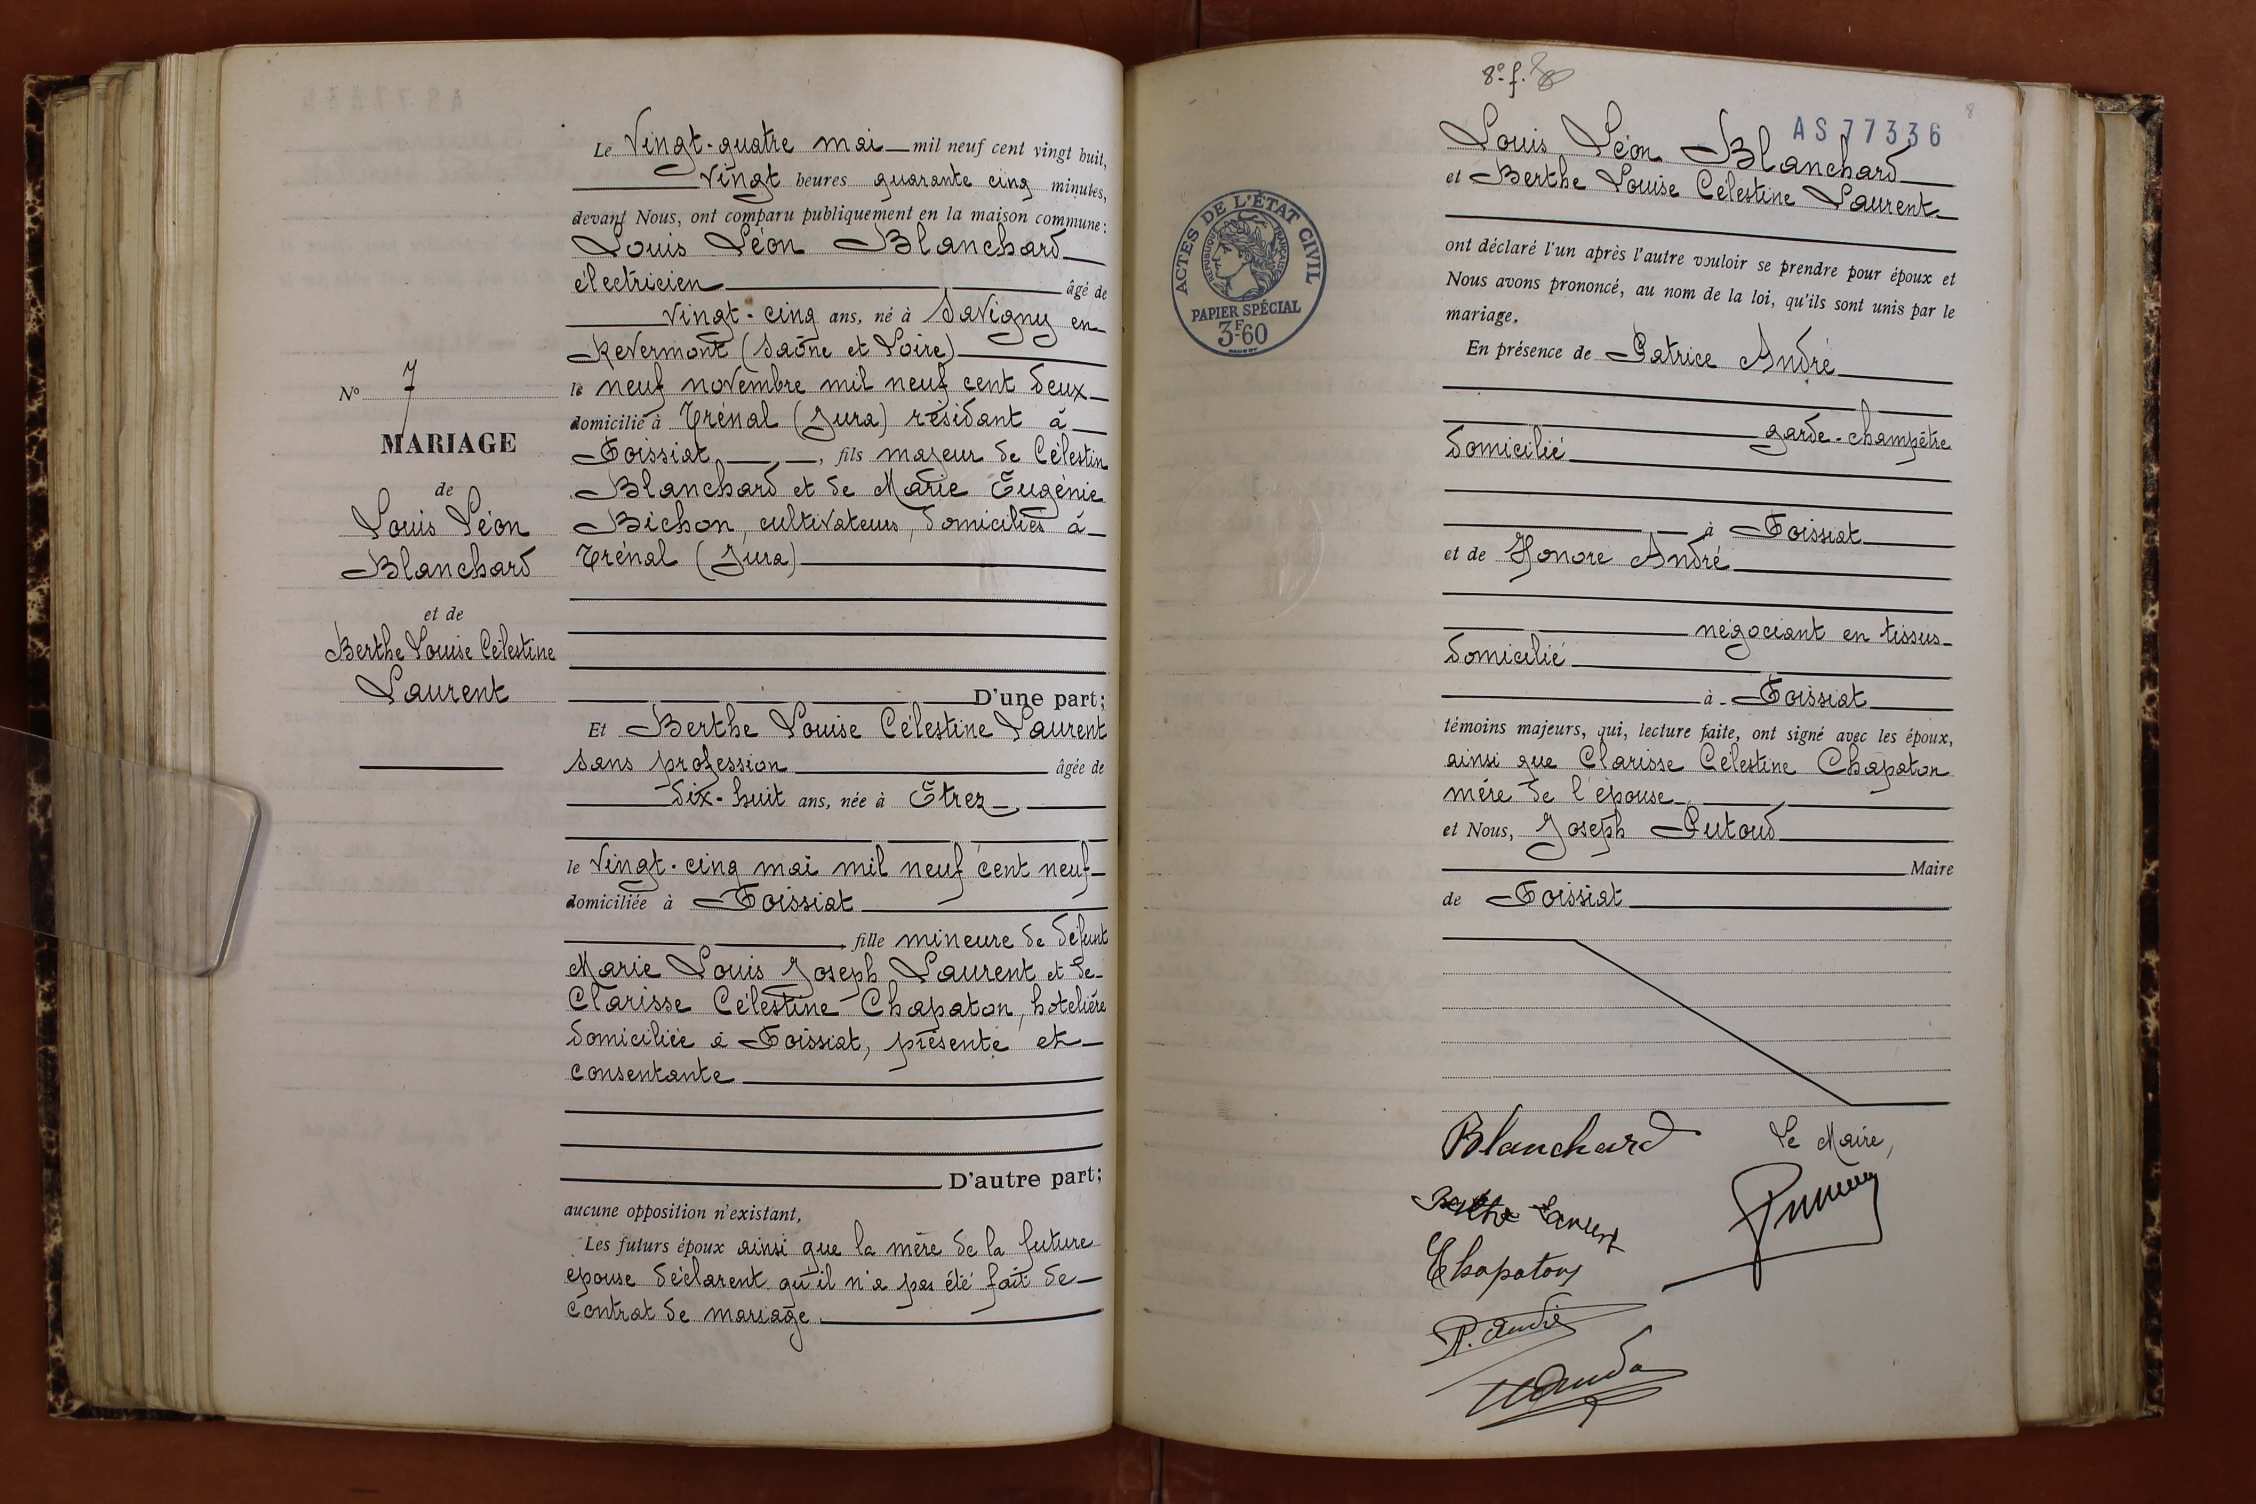 Le Vingt-quatre mai mil neuf cent vingt huit,
vingt heures quarante cinq minutes,
devant Nous, ont comparu publiquement en la maison commune :
Louis Léon Blanchard
électricien âgé de
vingt-cinq ans, né à Savigny en
Revermont (Saône et Loire)
le neuf novembre mil neuf cent deux
domicilié à Trénal (Jura) résidant à
Foissiat, fils majeur de Célestin
Blanchard et de Marie Eugénie
Bichon, cultivateurs, domiciliés à
Trénal (Jura)
D'une part;
Nº 7
MARIAGE
de
Louis Léon
Blanchard
et de
Berthe Louise Célestine
Laurent
Et Berthe Louise Célestine Laurent
sans profession âgée de
dix-huit ans, née à Etrez
le vingt-cinq mai mil neuf cent neuf
domiciliée à Foissiat
fille mineure de défunt
Marie Louis Joseph Laurent et de
Clarisse Célestine Chapaton, hotelière
domiciliée à Foissiat, présente et
consentante
D'autre part;
aucune opposition n'existant,
Les futurs époux ainsi que la mère de la future
épouse déclarent qu'il n'a pas été fait de
contrat de mariage
8e f.
8
AS 77336
ACTES DE L'ÉTAT CIVIL
RÉPUBLIQUE FRANÇAISE
PAPIER SPÉCIAL
3F60
Louis Léon Blanchard
et Berthe Louise Célestine Laurent
ont déclaré l'un après l'autre vouloir se prendre pour époux et
Nous avons prononcé, au nom de la loi, qu'ils sont unis par le
mariage.
En présence de Patrice André
garde-champêtre
domicilié
à Foissiat
et de Honore André
négociant en tissus
domicilié
à Foissiat
témoins majeurs, qui, lecture faite, ont signé avec les époux,
ainsi que Clarisse Célestine Chapaton
mère de l'épouse
et Nous, Joseph Putoud
Maire
de Foissiat
Blanchard
Le Maire,
Berthe Laurent
Chapaton
P. André